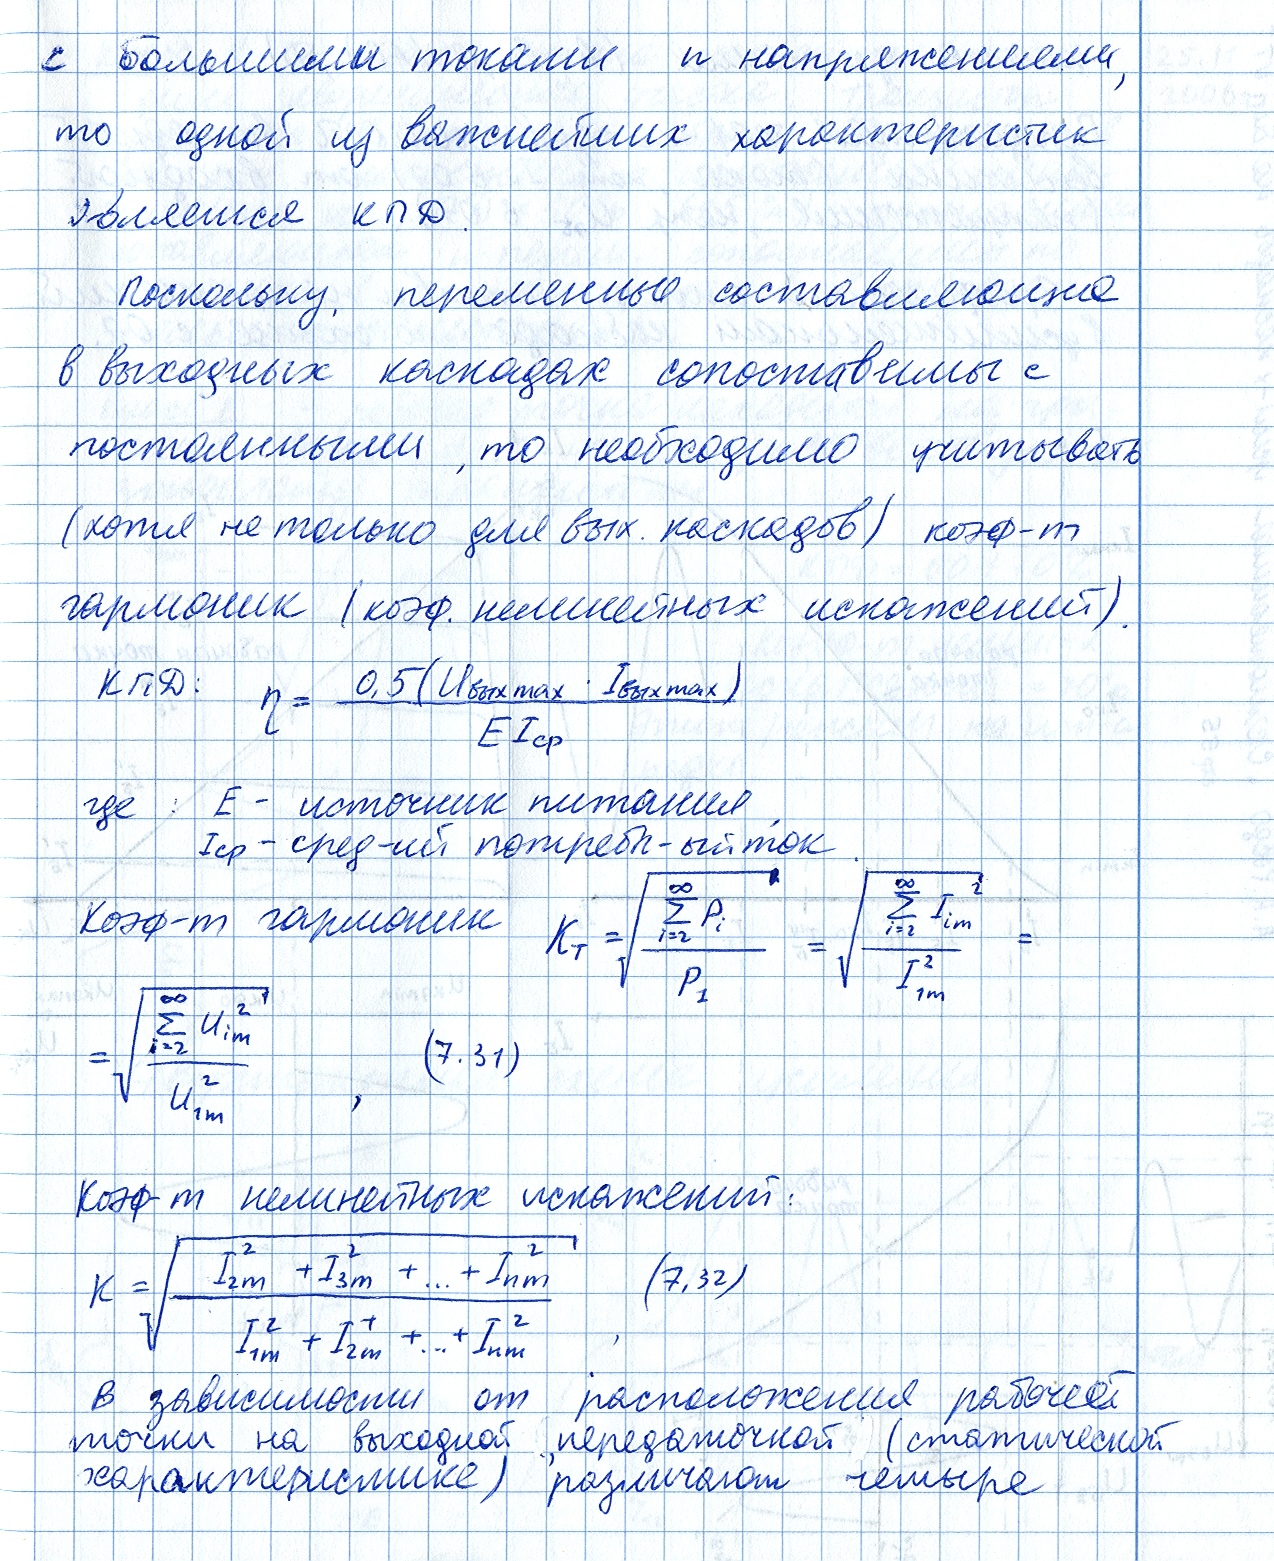 с большими токами и напряжениями,
то одной из важнейших характеристик
является КПД.
Поскольку, переменные составляющие
в выходных каскадах сопоставимы с
постоянными, то необходимо учитывать
(хотя не только для вых. каскадов) коэф-т
гармоник (коэф. нелинейных искажений).
КПД: η = 0,5(Uвыхmax · Iвыхmax) / E Iср
где: E - источник питания,
Iср - сред-ий потребл-ый ток.
Коэф-т гармоник Kт = √(∑_{i=2}^{∞} P_i / P_1) = √(∑_{i=2}^{∞} I_{im}^2 / I_{1m}^2) =
= √(∑_{i=2}^{∞} U_{im}^2 / U_{1m}^2), (7.31)
Коэф-т нелинейных искажений:
K = √((I_{2m}^2 + I_{3m}^2 + ... + I_{nm}^2) / (I_{1m}^2 + I_{2m}^+ + ... + I_{nm}^2)), (7,32)
В зависимости от расположения рабочей
точки на выходной, передаточной (статической
характеристике) различают четыре